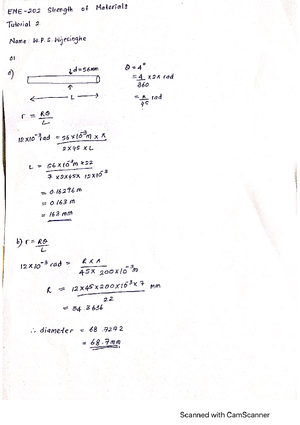 EME-202 Strength of Materials
Tutorial 2
Name: W.P.S. Wijesinghe
01
a)
d=56mm
L
θ = 4°
= 4/360 × 2π rad
= π/45 rad
r = Rθ/L
12×10⁻³ rad = 56×10⁻³m × π / 2×45×L
L = 56×10⁻³m × 22 / 7×2×45×12×10⁻³
= 0.16296 m
= 0.163 m
= 163 mm
b) r = Rθ/L
12×10⁻³ rad = R×π / 45× 200×10⁻³m
R = 12×45×200×10⁻³×7 / 22 mm
= 34.3636
∴ diameter = 68.7272
= 68.7mm
Scanned with CamScanner